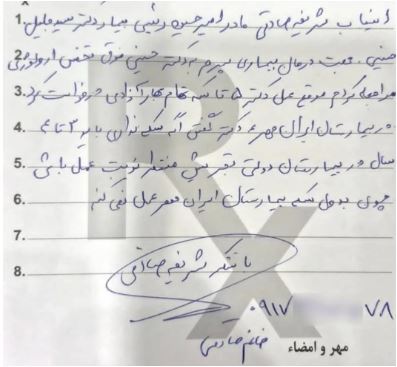 1. اینجانب شریفه صادقی مادر امیر حسین رئیسی بیمار دکتر سید جلیل
2. حسینی جهت درمان بیماری پسرم به دکتر حسینی فوق تخصص ارولوژی
3. مراجعه کردم موقع عمل دکتر ۵ تا سکه تمام بهار آزادی درخواست کرد
4. در بیمارستان ایران مهر و دکتر گفتن اگر سکه نداری باید ۳ تا ۴
5. سال در بیمارستان دولتی تجریش منتظر نوبت عمل باشی
6. چون بدون سکه بیمارستان ایران مهر عمل نمی کنم
7.
8. با تشکر شریفه صادقی
۰۹۱۷ ۷۸
مهر و امضاء خانم صادقی